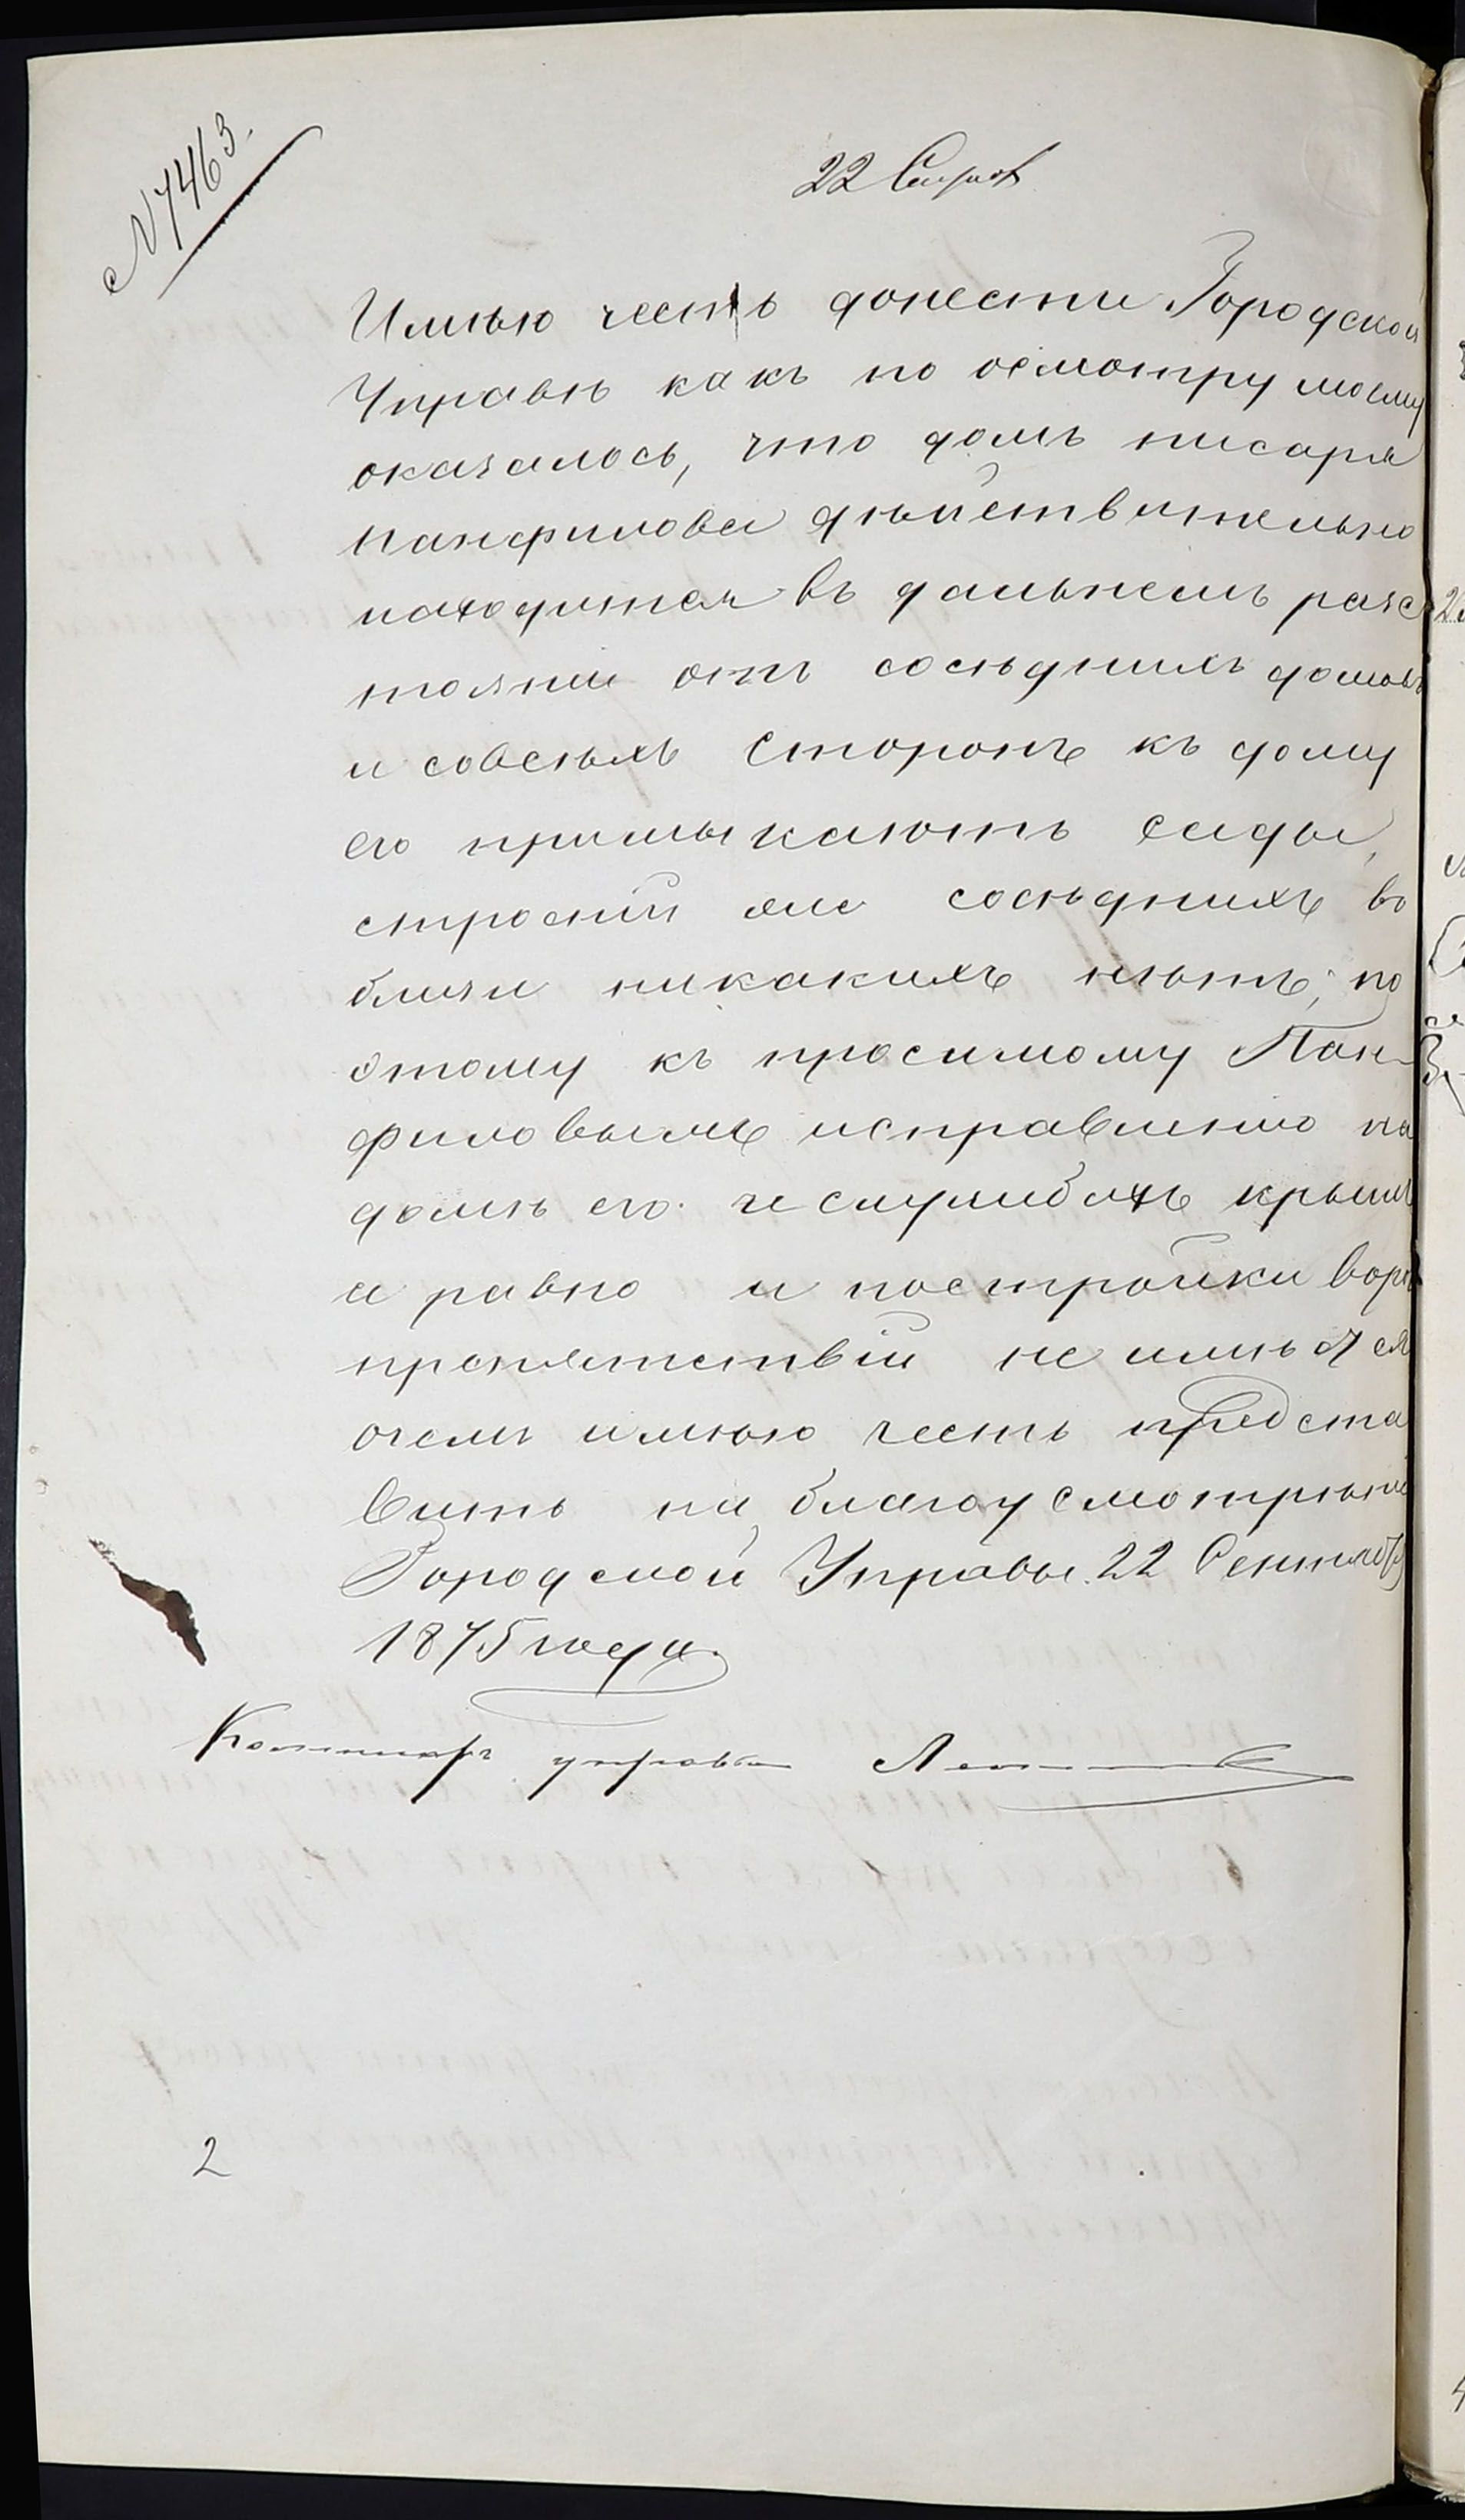 № 7463.
22 Сентяб
Имѣю честь донести Городской
Управѣ какъ по осмотру моему
оказалось, что домъ писаря
Панфилова дѣйствительно
находится въ дальнемъ разс
тояніи отъ сосѣднихъ домовъ
и совсѣхъ сторонъ къ дому
его примыкаютъ сады,
строеній же сосѣднихъ во
близи никакихъ нѣтъ, по
этому къ просимому Пан-
филовымъ исправленію на
домѣ его крыши
а равно и постройки вор
препятствій не имѣется
очемъ имѣю честь предста
вить на благоусмотрѣніе
Городской Управы. 22 Сентября
1875 года.
управы
2